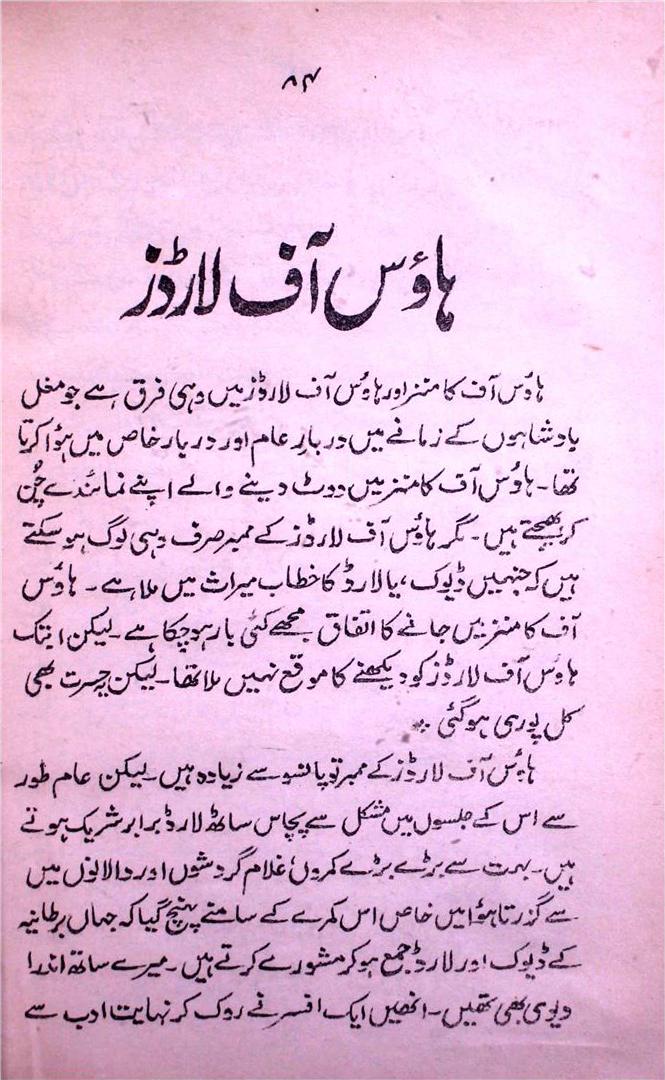 ۸۴
ہاؤس آف لارڈز
ہاؤس آف کامنز اور ہاؤس آف لارڈز میں وہی فرق ہے جو مغل
بادشاہوں کے زمانے میں دربارِ عام اور دربار خاص میں ہؤا کرتا
تھا۔ ہاؤس آف کامنز میں ووٹ دینے والے اپنے نمائندے چُن
کر بھیجتے ہیں۔ مگر ہاؤس آف لارڈز کے ممبر صرف وہی لوگ ہو سکتے
ہیں کہ جنہیں ڈیوک، یا لارڈ کا خطاب میراث میں ملا ہے۔ ہاؤس
آف کامنز میں جانے کا اتفاق مجھے کئی بار ہو چکا ہے۔ لیکن ابتک
ہاؤس آف لارڈز کو دیکھنے کا موقع نہیں ملا تھا۔ لیکن یہ حسرت بھی
کل پوری ہو گئی ۔
ہاؤس آف لارڈز کے ممبر تو پانسو سے زیادہ ہیں۔ لیکن عام طور
سے اس کے جلسوں میں مشکل سے پچاس ساٹھ لارڈ برابر شریک ہوتے
ہیں۔ بہت سے بڑے بڑے کمروں، غلام گردشوں اور دالانوں میں
سے گزرتا ہؤا میں خاص اس کمرے کے سامنے پہنچ گیا کہ جہاں برطانیہ
کے ڈیوک اور لارڈ جمع ہو کر مشورے کرتے ہیں۔ میرے ساتھ اندرا
دیوی بھی تھیں۔ انھیں ایک افسر نے روک کر نہایت ادب سے